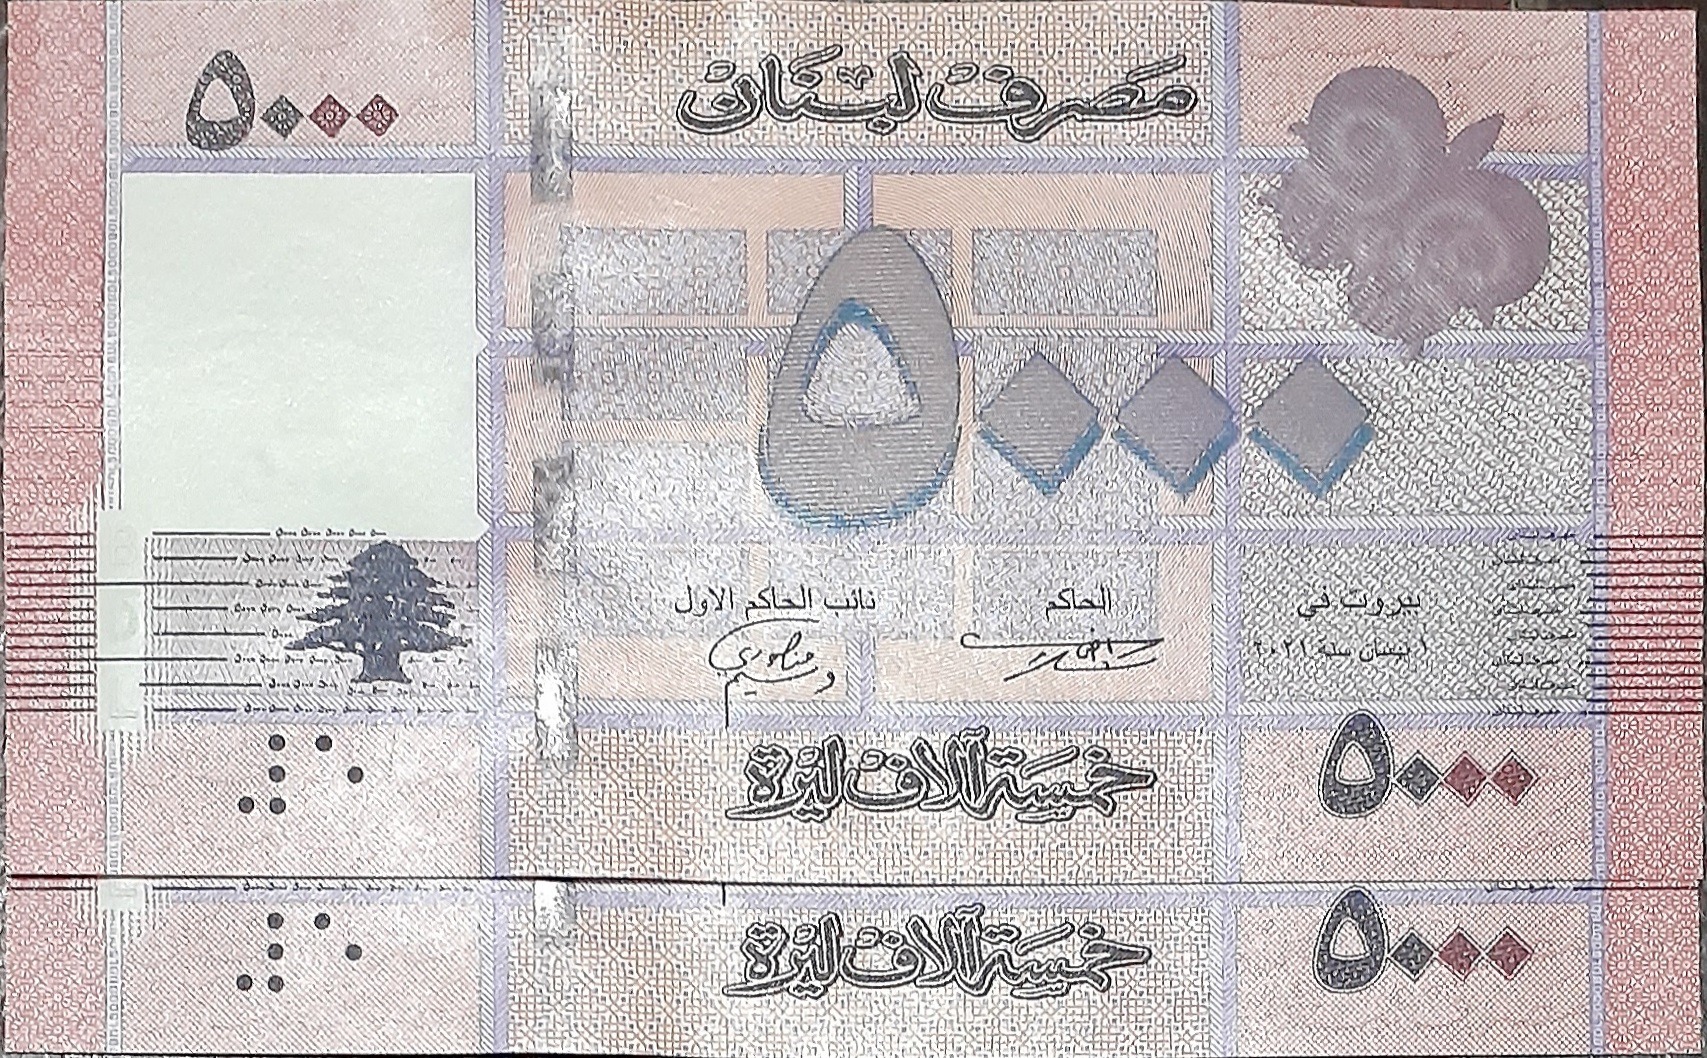 ٥٠٠٠
مصرف لبنان
٥٠٠٠
نائب الحاكم الاول
الحاكم
بيروت في
١ نيسان سنة ٢٠٢١
خمسة آلاف ليرة
٥٠٠٠
خمسة آلاف ليرة
٥٠٠٠